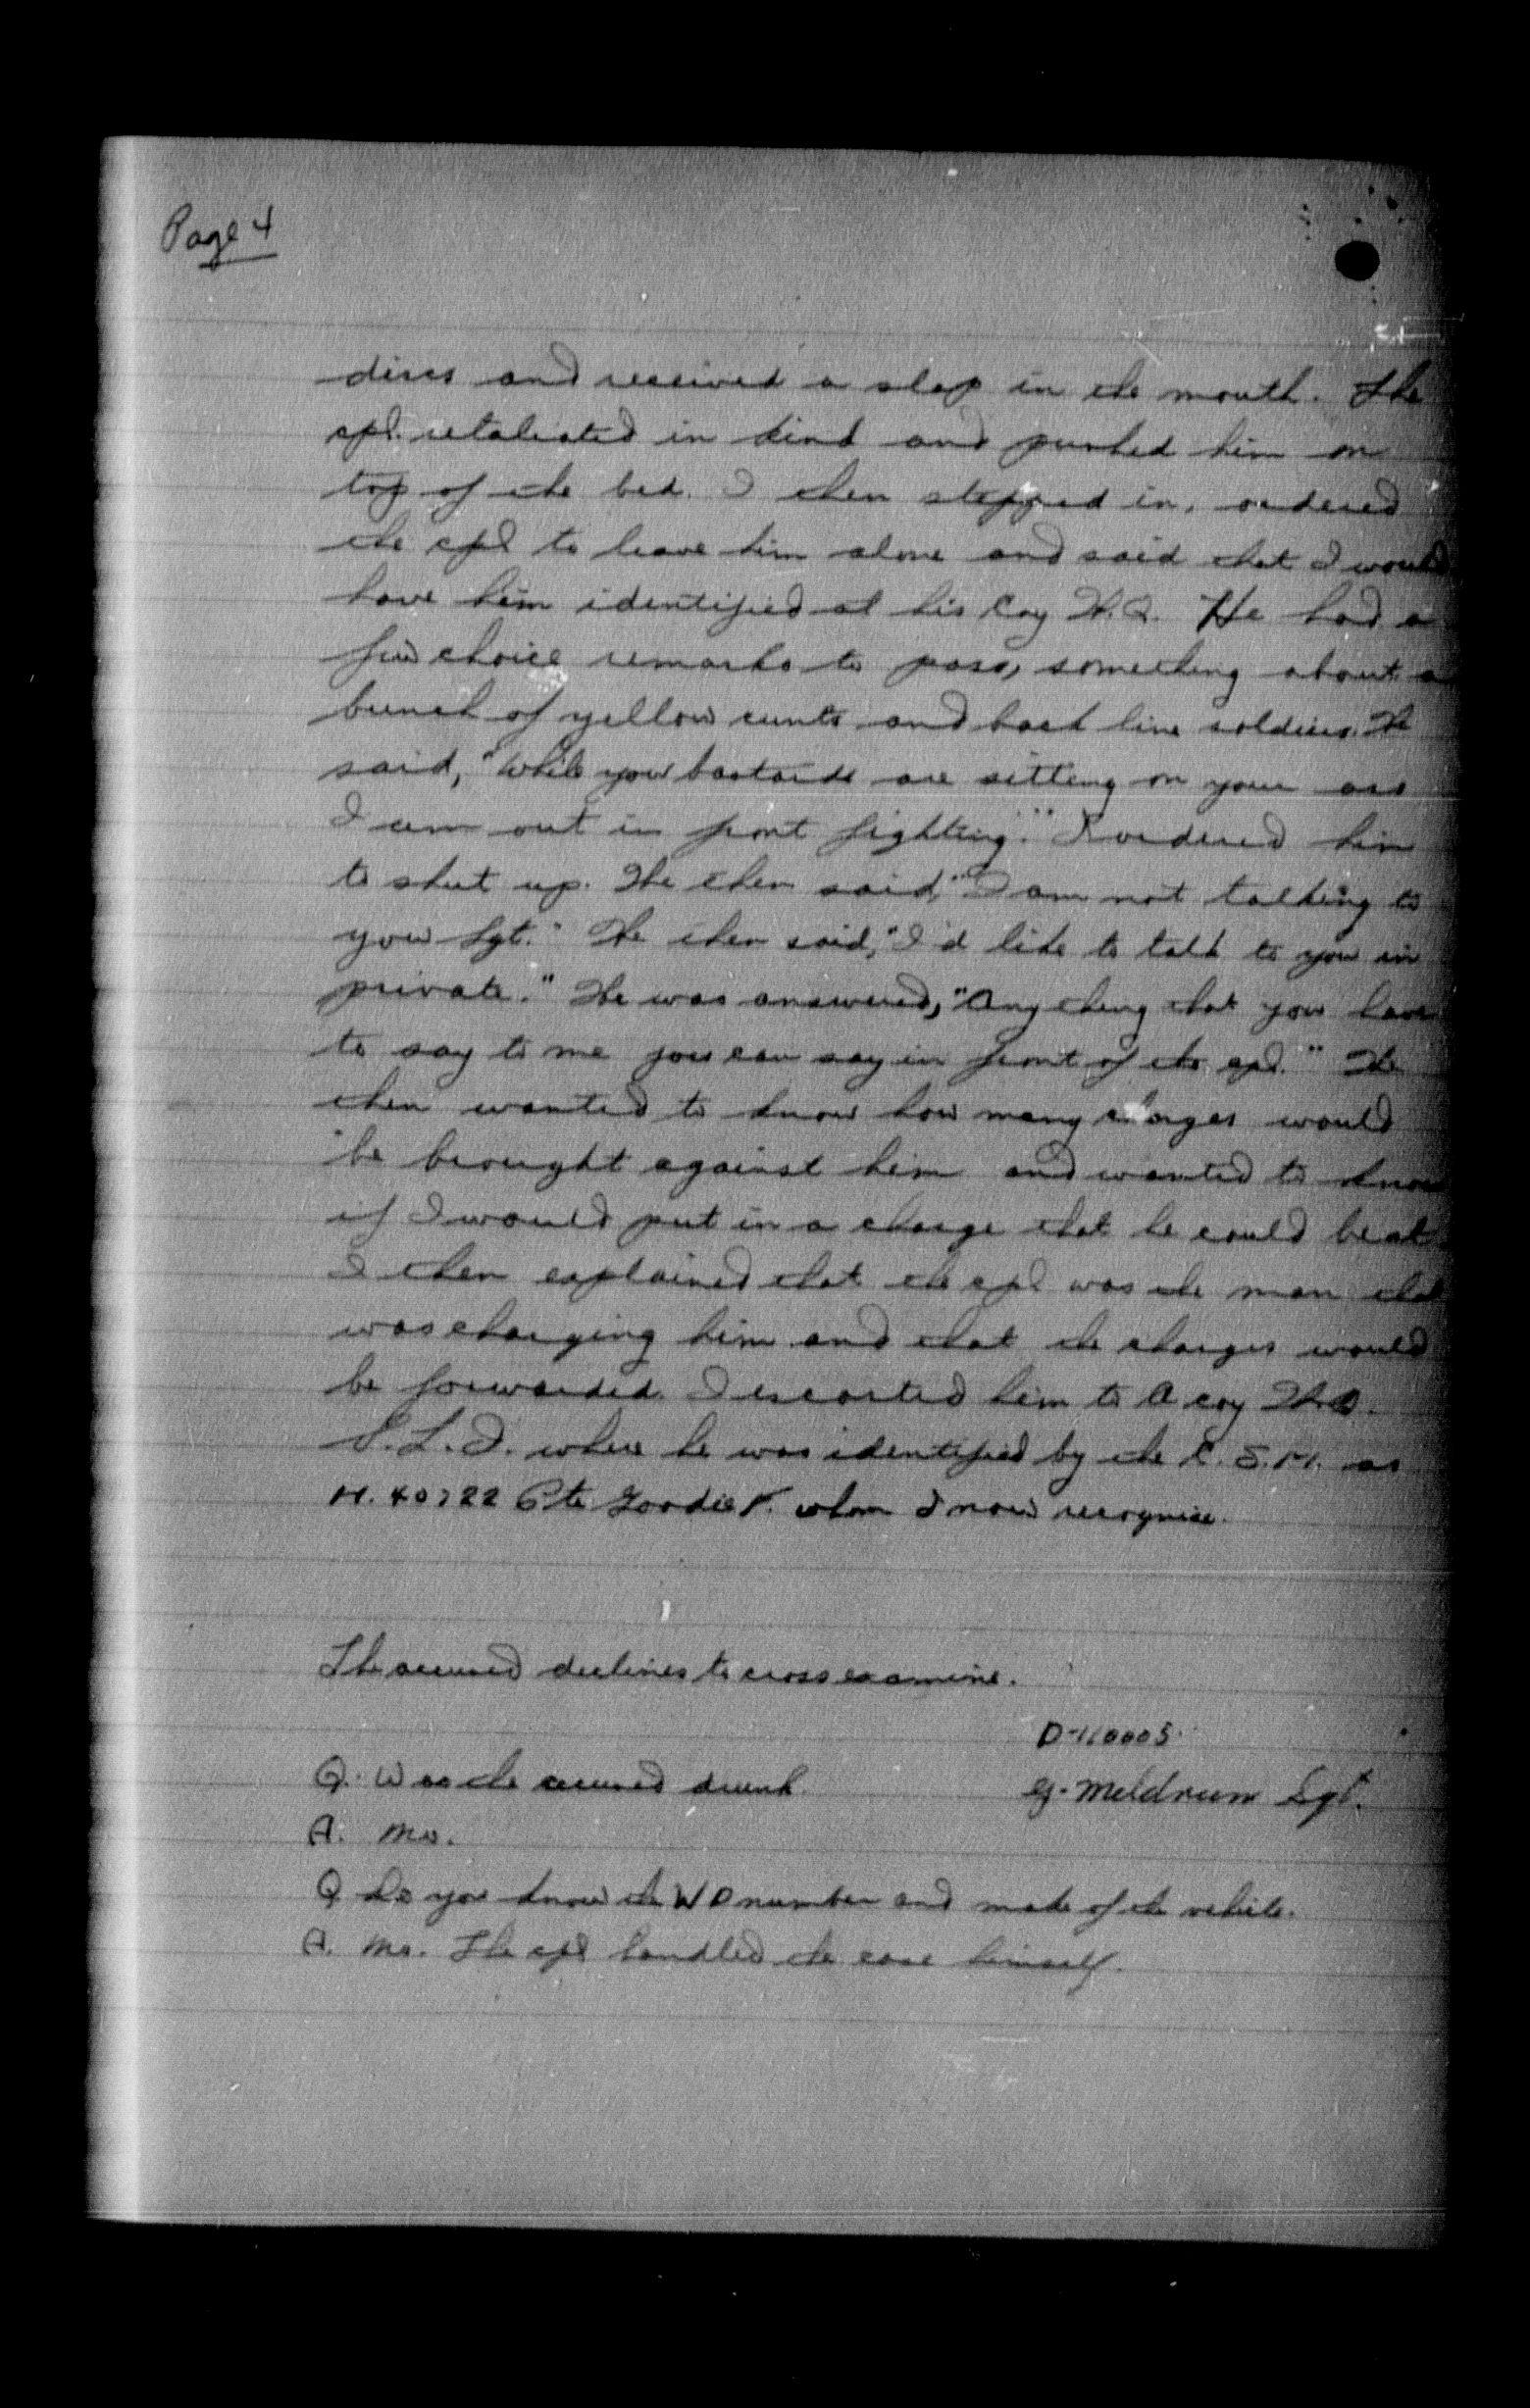 Page 4
discs and received a slap in the mouth. The
cpl. retaliated in kind and pushed him on
top of the bed. I then stepped in, ordered
the cpl to leave him alone and said that I would
have him identified at his Coy H.Q. He had a
few choice remarks to pass, something about a
bunch of yellow cunts and back line soldiers. He
said, "While you bastards are sitting on your ass
I am out in front fighting." I ordered him
to shut up. He then said, "I am not talking to
you Sgt." He then said, "I'd like to talk to you in
private." He was answered, "Anything that you have
to say to me you can say in front of the cpl." He
then wanted to know how many charges would
be brought against him and wanted to know
if I would put in a charge that he could beat
I then explained that the cpl was the man that
was charging him and that the charges would
be forwarded. I escorted him to A coy H.Q.
where he was identified by the C.S.M. as
H.40722 Pte Goodie whom I now recognise.
The accused declines to cross examine.
D-110005
Q. Was the accused drunk.
G. Meldrum Sgt.
A. No.
Q Do you know the WD number and make of the vehicle.
A. No. The cpl handled the case himself.